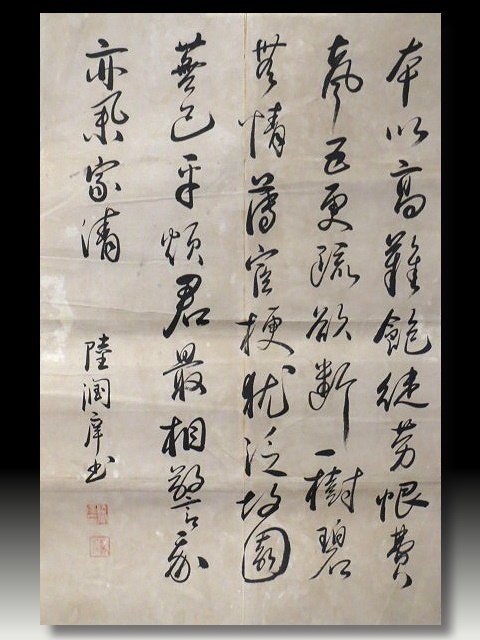 本以高難飽徒勞恨費
聲五更疏欲斷一樹碧
無情薄宦梗猶泛故園
蕪已平煩君最相警我
亦舉家清
陸潤庠書